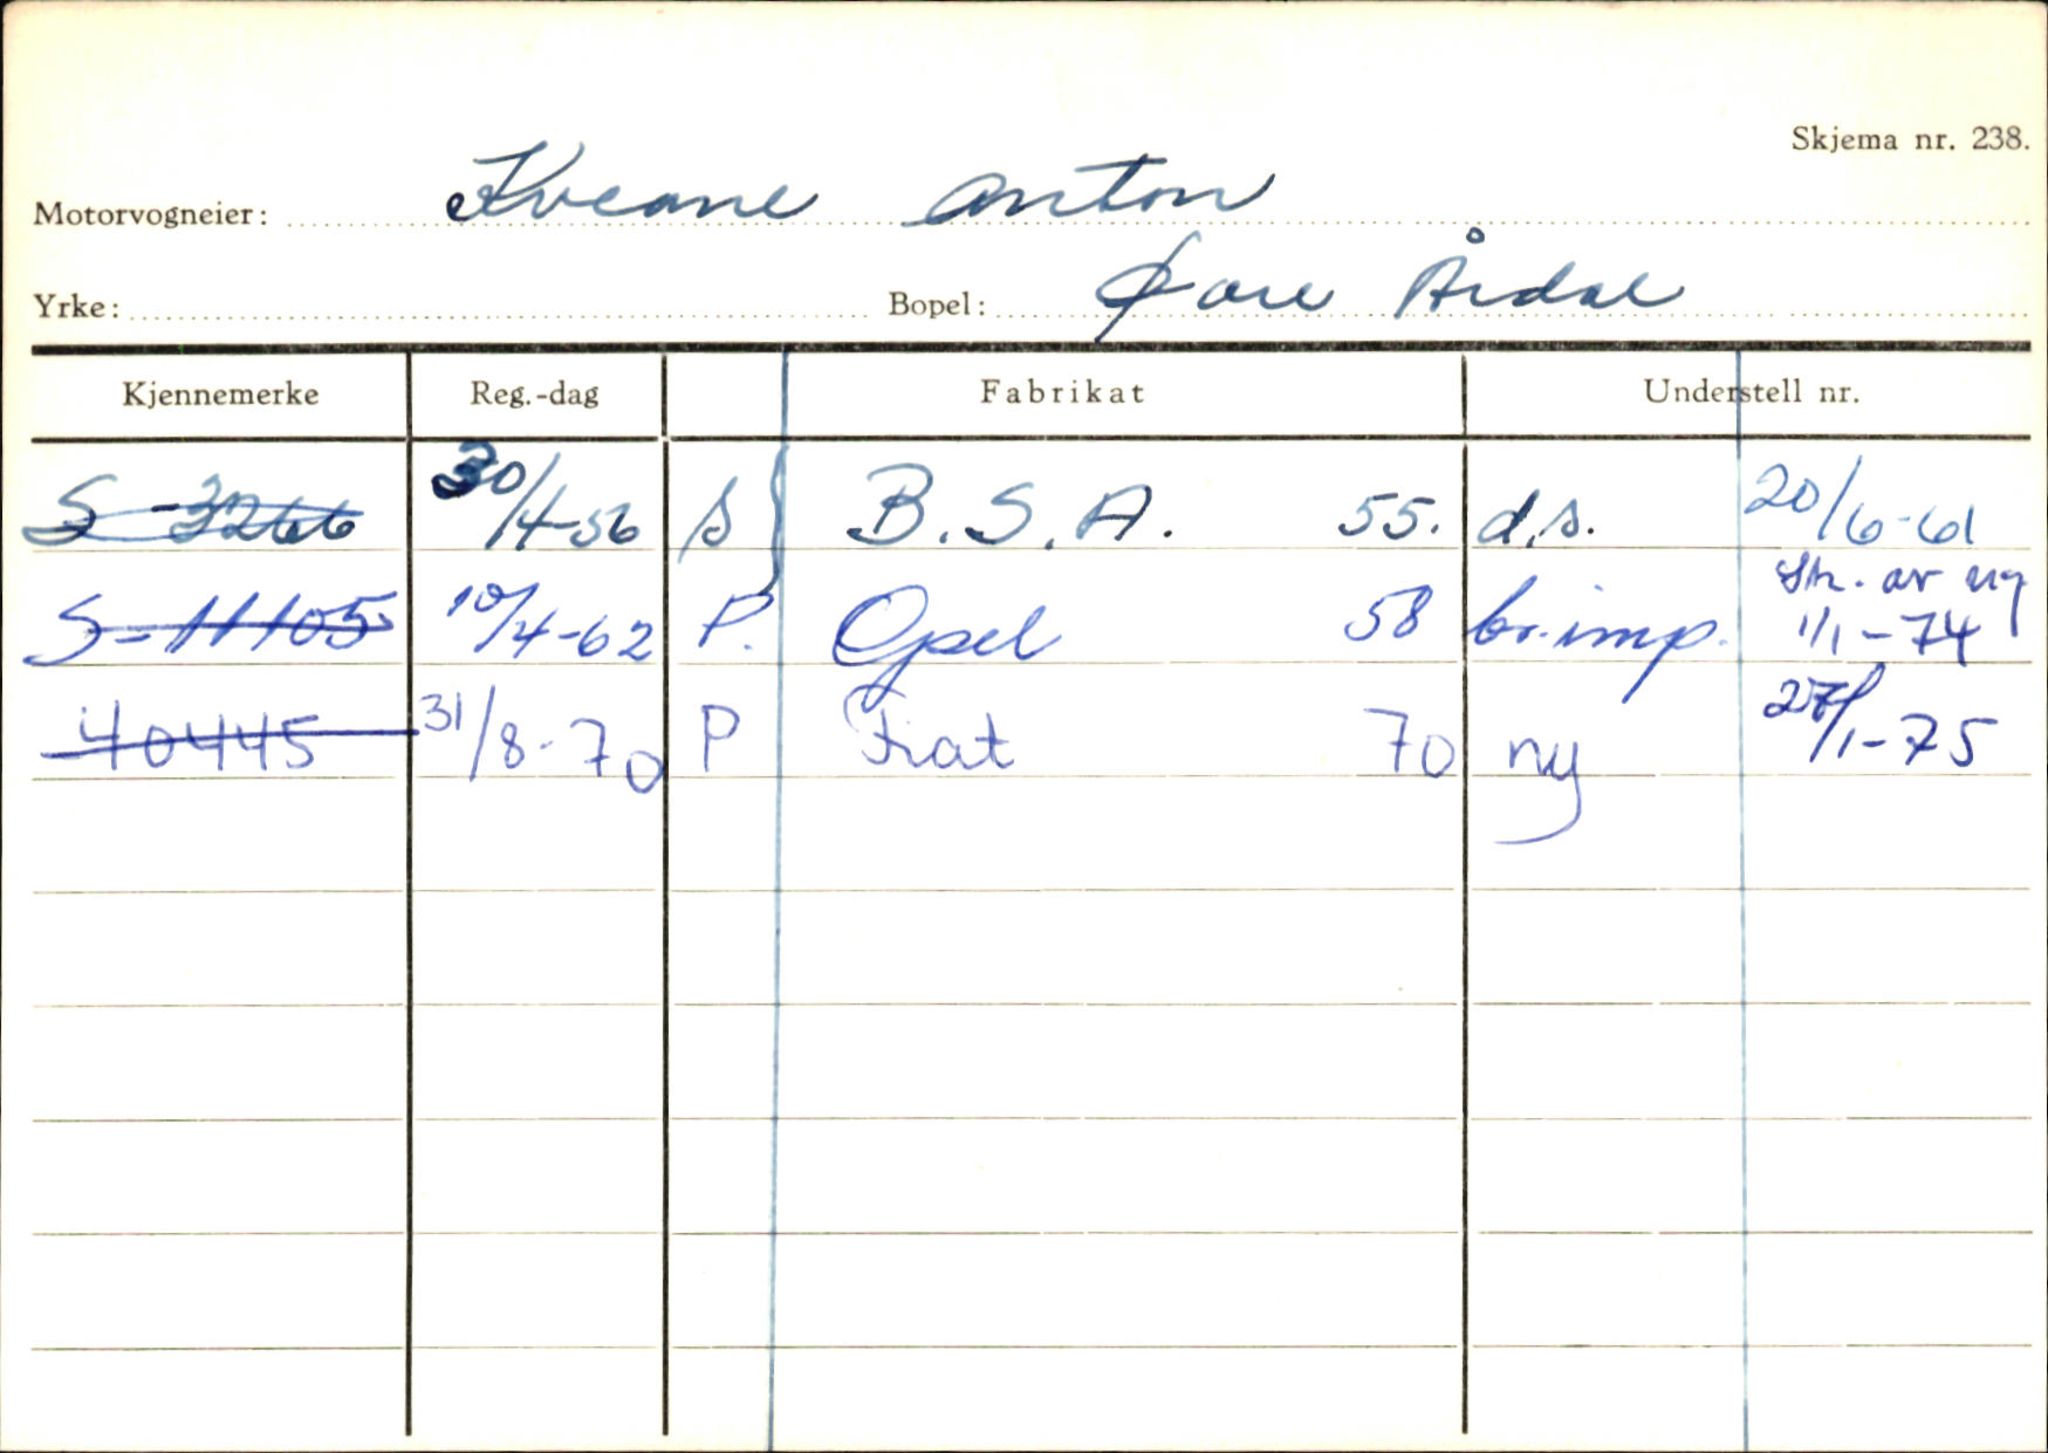 Skjema nr. 238.
Motorvogneier: Kveane Anton
Yrke: Bopel: Øvre Årdal
Kjennemerke Reg.-dag Fabrikat Understell nr.
S-3266 30/4-56 S B.S.A. 55. d.s. 20/6-61
S-11105 10/4-62 P. Opel 58 br.imp. Str. av reg 1/1-74
40445 31/8-70 P Fiat 70 ny 27/1-75